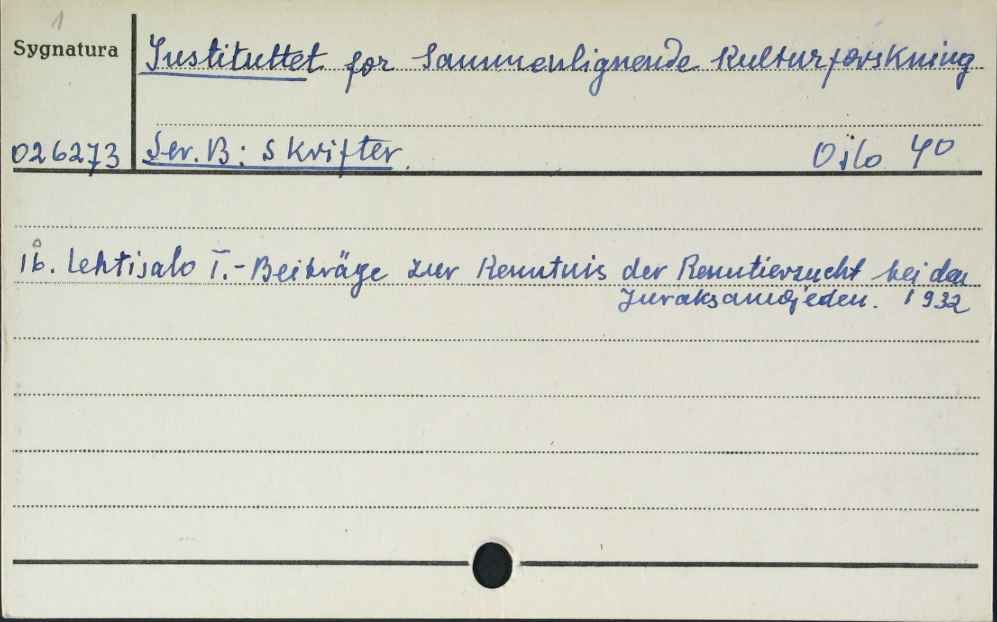 1
Sygnatura
Instituttet for Sammenlignende Kulturforskning
026273
Ser. B: Skrifter.
Oslo 40
16. Lehtisalo T. - Beiträge zur Kenntnis der Renntierzucht bei den
Juraksamojeden. 1932